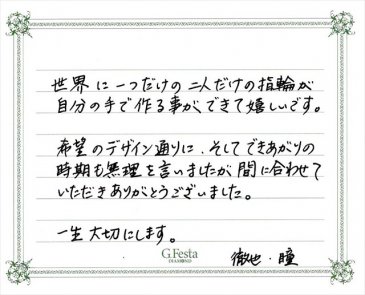 世界に一つだけの二人だけの指輪が
自分の手で作る事ができて嬉しいです。
希望のデザイン通りに、そしてできあがりの
時期も無理を言いましたが間に合わせて
いただきありがとうございました。
一生大切にします。
G.Festa
DIAMOND
徹也・瞳